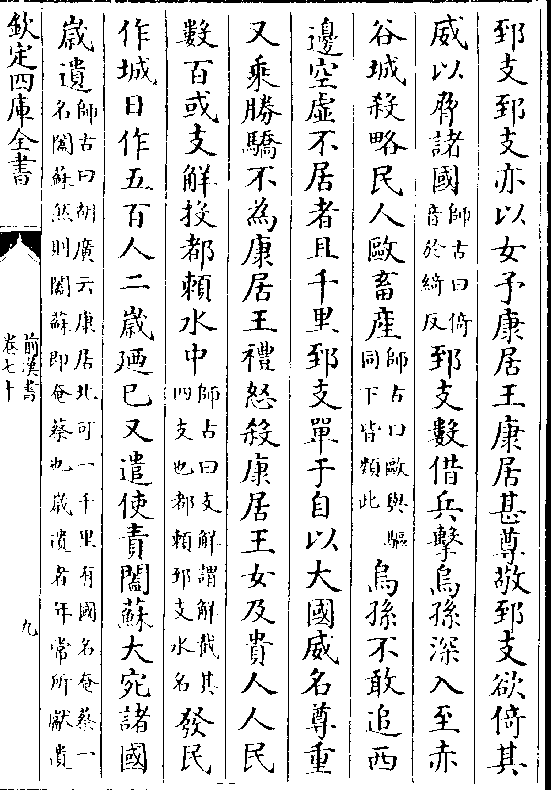 郅支郅支亦以女予康居王康居甚尊敬郅支欲倚其
威以脅諸國師古曰倚音於綺反郅支數借兵擊烏孫深入至赤
谷城殺略民人歐畜産師古曰歐與驅同下皆類此烏孫不敢追西
邊空虛不居者且千里郅支單于自以大國威名尊重
又乘勝驕不為康居王禮怒殺康居王女及貴人人民
數百或支解投都賴水中師古曰支解謂解截其四支也都賴郅支水名發民
作城日作五百人二歲廼已又遣使責闔蘇大宛諸國
歲遺師古曰胡廣云康居北可一千里有國名奄蔡一名闔蘇然則闔蘇即奄蔡也歲遺者年常所獻遺
欽定四庫全書
前漢書
卷七十
九